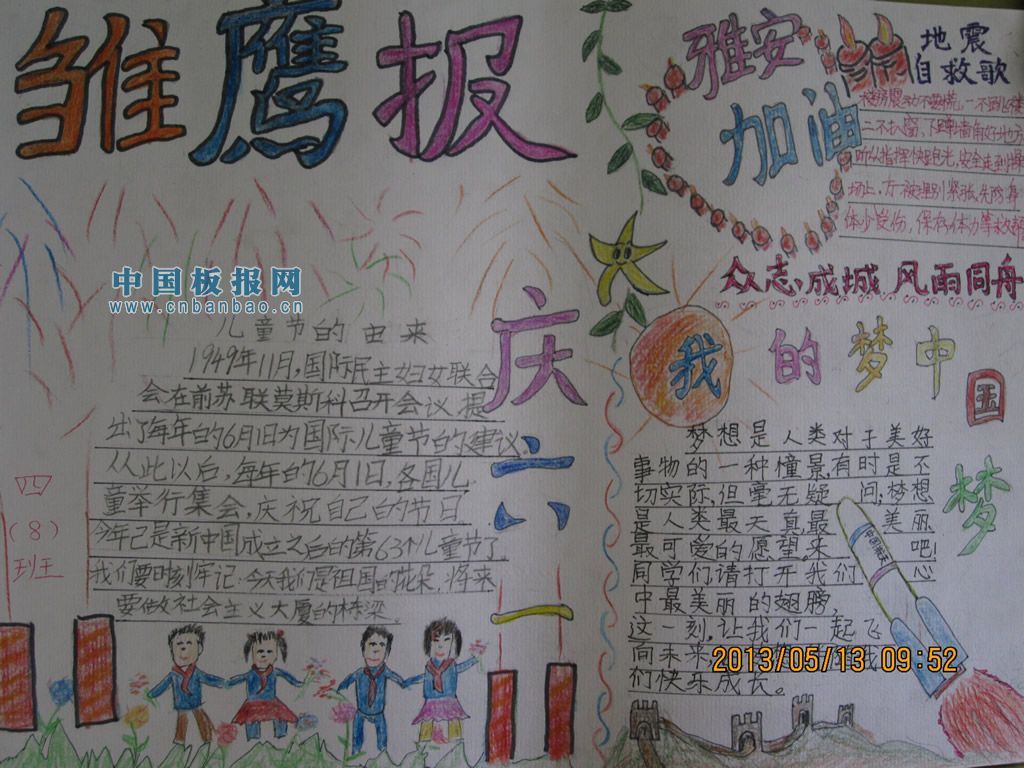 雏鹰报
中国板报网
www.cnbanbao.cn
儿童节的由来
1949年11月,国际民主妇女联合
会在前苏联莫斯科召开会议,提
出了每年的6月1日为国际儿童节的建议。
从此以后,每年的6月1日,各国儿
童举行集会,庆祝自己的节日
今年已是新中国成立之后的第63个儿童节了。
我们要时刻牢记:今天我们是祖国的花朵,将来
要做社会主义大厦的桥梁。
四
(8)
班
庆
六
一
雅安
加油
地震
自救歌
二不扒窗,下蹲墙角好地方
听从指挥快跑光,安全走到操
场上,万一被埋别紧张,先防身
体少受伤,保存体力等救
众志成城 风雨同舟
我的梦中
国
梦
梦想是人类对于美好
事物的一种憧景,有时是不
切实际,但毫无疑问;梦想
是人类最天真最美丽
最可爱的愿望。来吧!
同学们请打开我们心
中最美丽的翅膀,
这一刻,让我们一起飞
向未来
们快乐成长。
2013/05/13 09:52